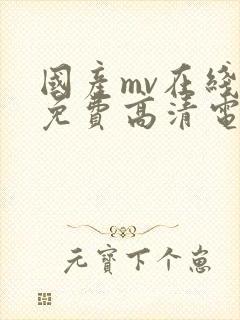 國產mv在綫
免費高清電
元寶下个崽